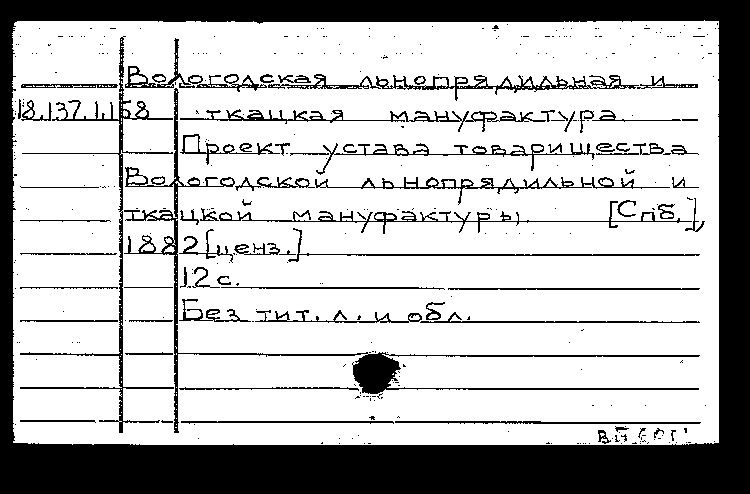 Вологодская льнопрядильная и
18.137.1.158 ткацкая мануфактура.
Проект устава товарищества
Вологодской льнопрядильной и
ткацкой мануфактуры. [Спб.],
1882 [ценз.].
12 с.
Без тит. л. и обл.